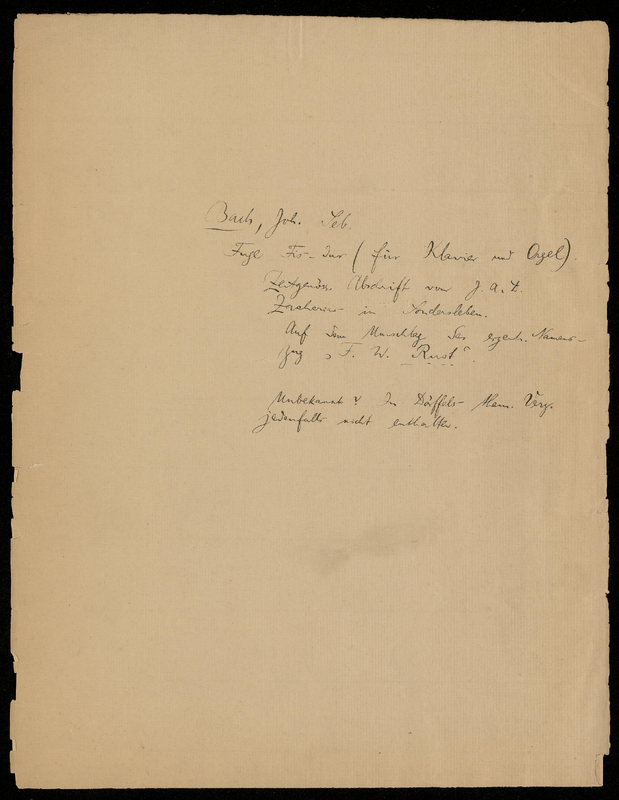 Bach, Joh. Seb.
Fuge Fis-dur (für Klavier und Orgel)
Zeitgenöss. Abschrift von J. A. L.
in Sondersleben.
Auf dem Umschlag der eigenh. Namens-
zug „F. W. Rust“.
Unbekannt? In Dörffels them. Verz.
jedenfalls nicht enthalten.